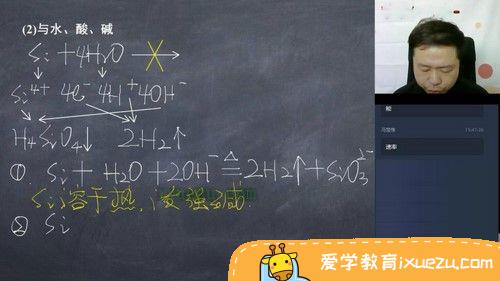 (2)与水、酸、碱
Si + 4H₂O ⟶
Si⁴⁺ 4e⁻ 4H⁺ 4OH⁻
H₄SiO₄↓ 2H₂↑
① Si + H₂O + 2OH⁻ ≜ 2H₂↑ + SiO₃²⁻
Si溶于热,浓强碱.
② Si
速率
爱学教育ixuezu.com